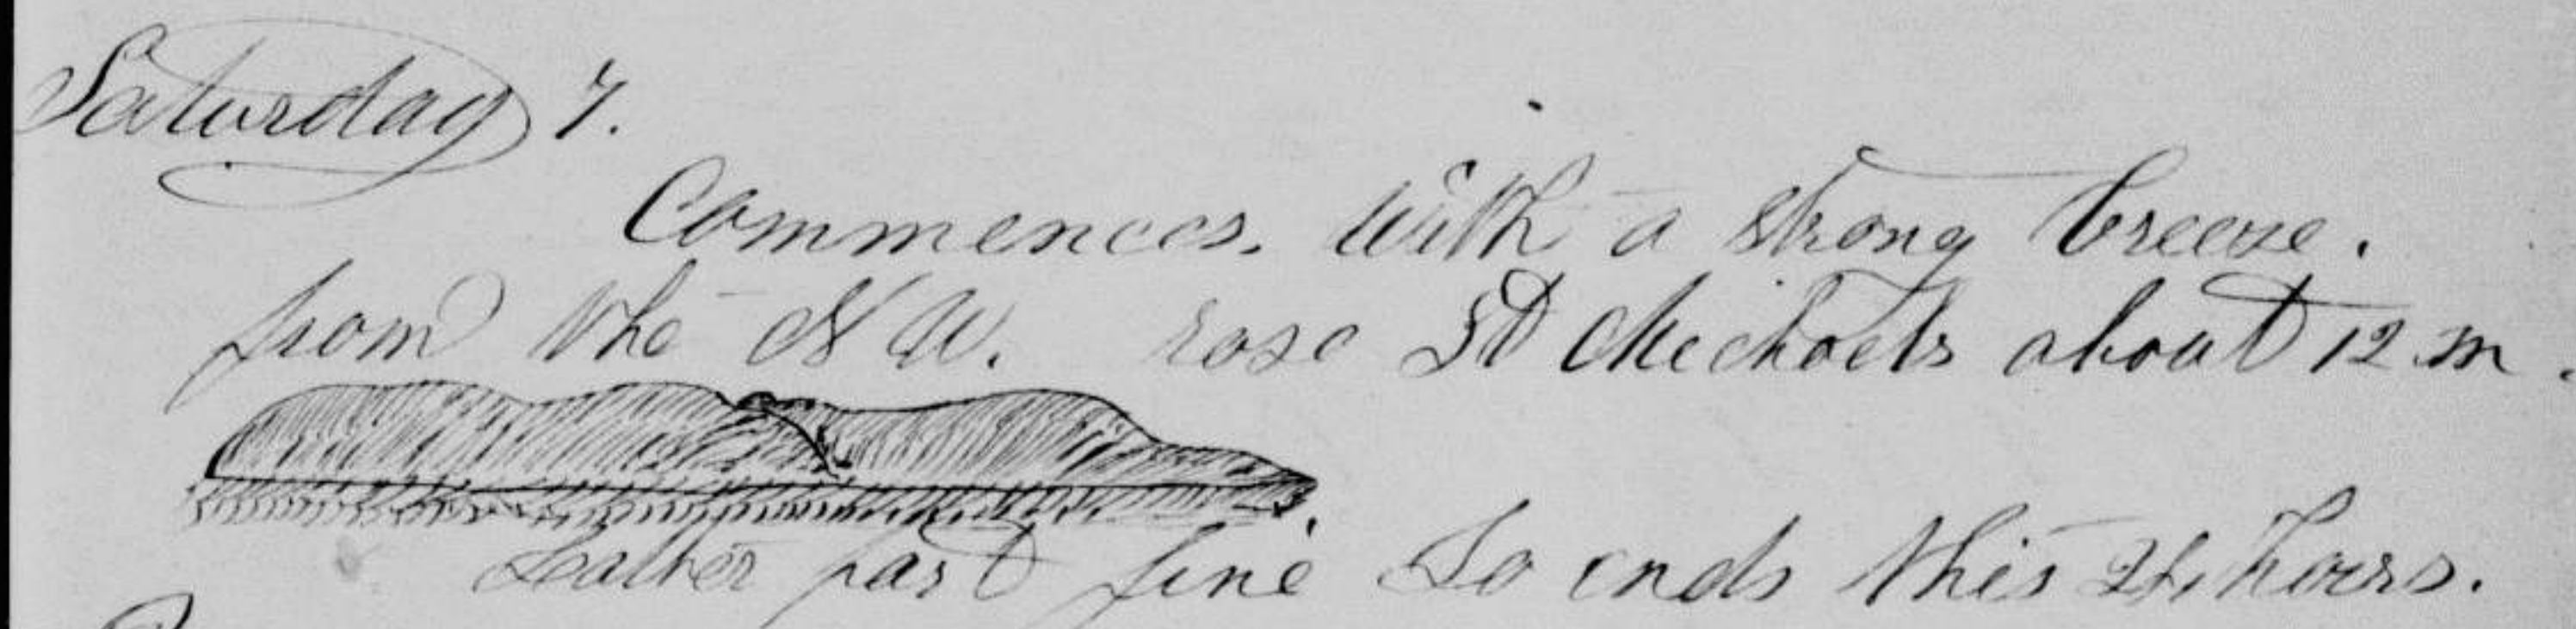 Saturday 7.
Commences. with a strong breeze.
from the N W. rose St Michaels about 12. m.
Leather part fine So ends this 24 hours.